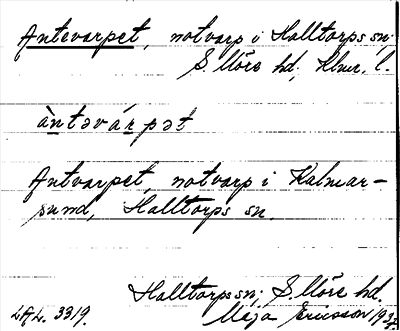 Antevarpet, notvarp i Halltorps sn,
S. Möre hd, Klmr. l.
àntəvárpət
Antvarpet, notvarp i Kalmar-
sund, Halltorps sn.
Halltorps sn; S. Möre hd.
LAL. 3319. Meja Ericsson 1934.